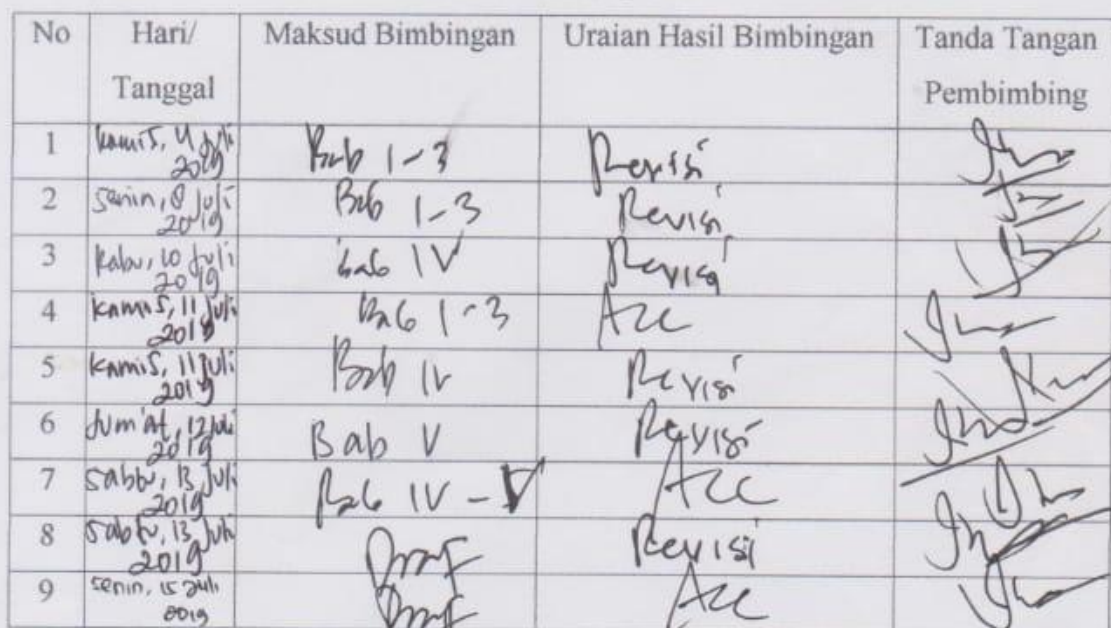 No Hari/ Tanggal Maksud Bimbingan Uraian Hasil Bimbingan Tanda Tangan Pembimbing
1 Kamis, 4 Juli 2019 Bab 1-3 Revisi
2 Senin, 8 Juli 2019 Bab 1-3 Revisi
3 Rabu, 10 Juli 2019 bab IV Revisi
4 Kamis, 11 Juli 2019 Bab 1-3 Acc
5 Kamis, 11 Juli 2019 Bab IV Revisi
6 Jum'at, 12 Juli 2019 Bab V Revisi
7 Sabtu, 13 Juli 2019 Bab IV - V Acc
8 Sabtu, 13 Juli 2019 Draf Revisi
9 Senin, 15 Juli 2019 Draf Acc